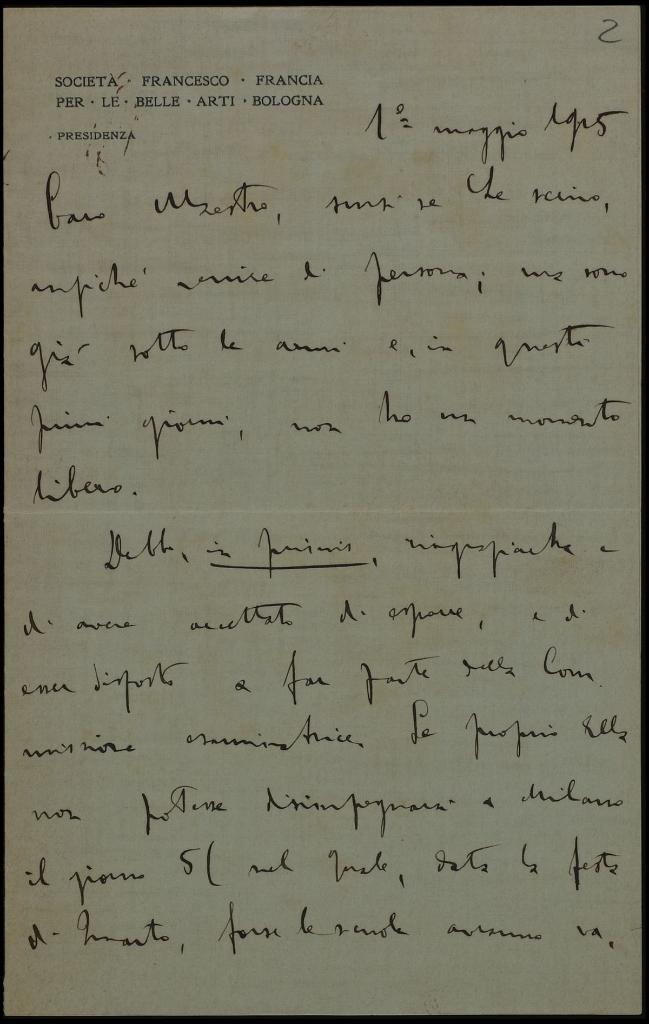 2
SOCIETÀ · FRANCESCO · FRANCIA
PER · LE · BELLE · ARTI · BOLOGNA
· PRESIDENZA
1º maggio 1915
Caro Maestro, scusi se Le scrivo,
anziché venire di persona; ma sono
già sotto le armi e, in questi
primi giorni, non ho un momento
libero.
Debbo, in primis, ringraziarla e
di avere accettato di esporre, e di
esser disposto a far parte della Com-
missione esaminatrice. Se proprio Ella
non potesse disimpegnarsi a Milano
il giorno 5 (nel quale, data la festa
di Quarto, forse le scuole avranno va-